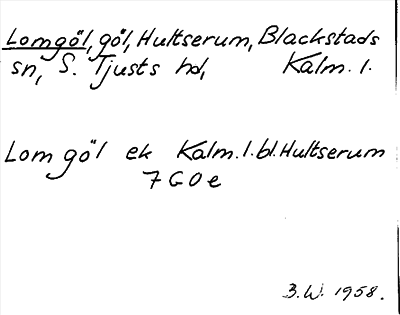 Lomgöl, göl, Hultserum, Blackstads
sn, S. Tjusts hd, Kalm. l.
Lomgöl ek Kalm. l. bl. Hultserum
7 G O e
B.W. 1958.